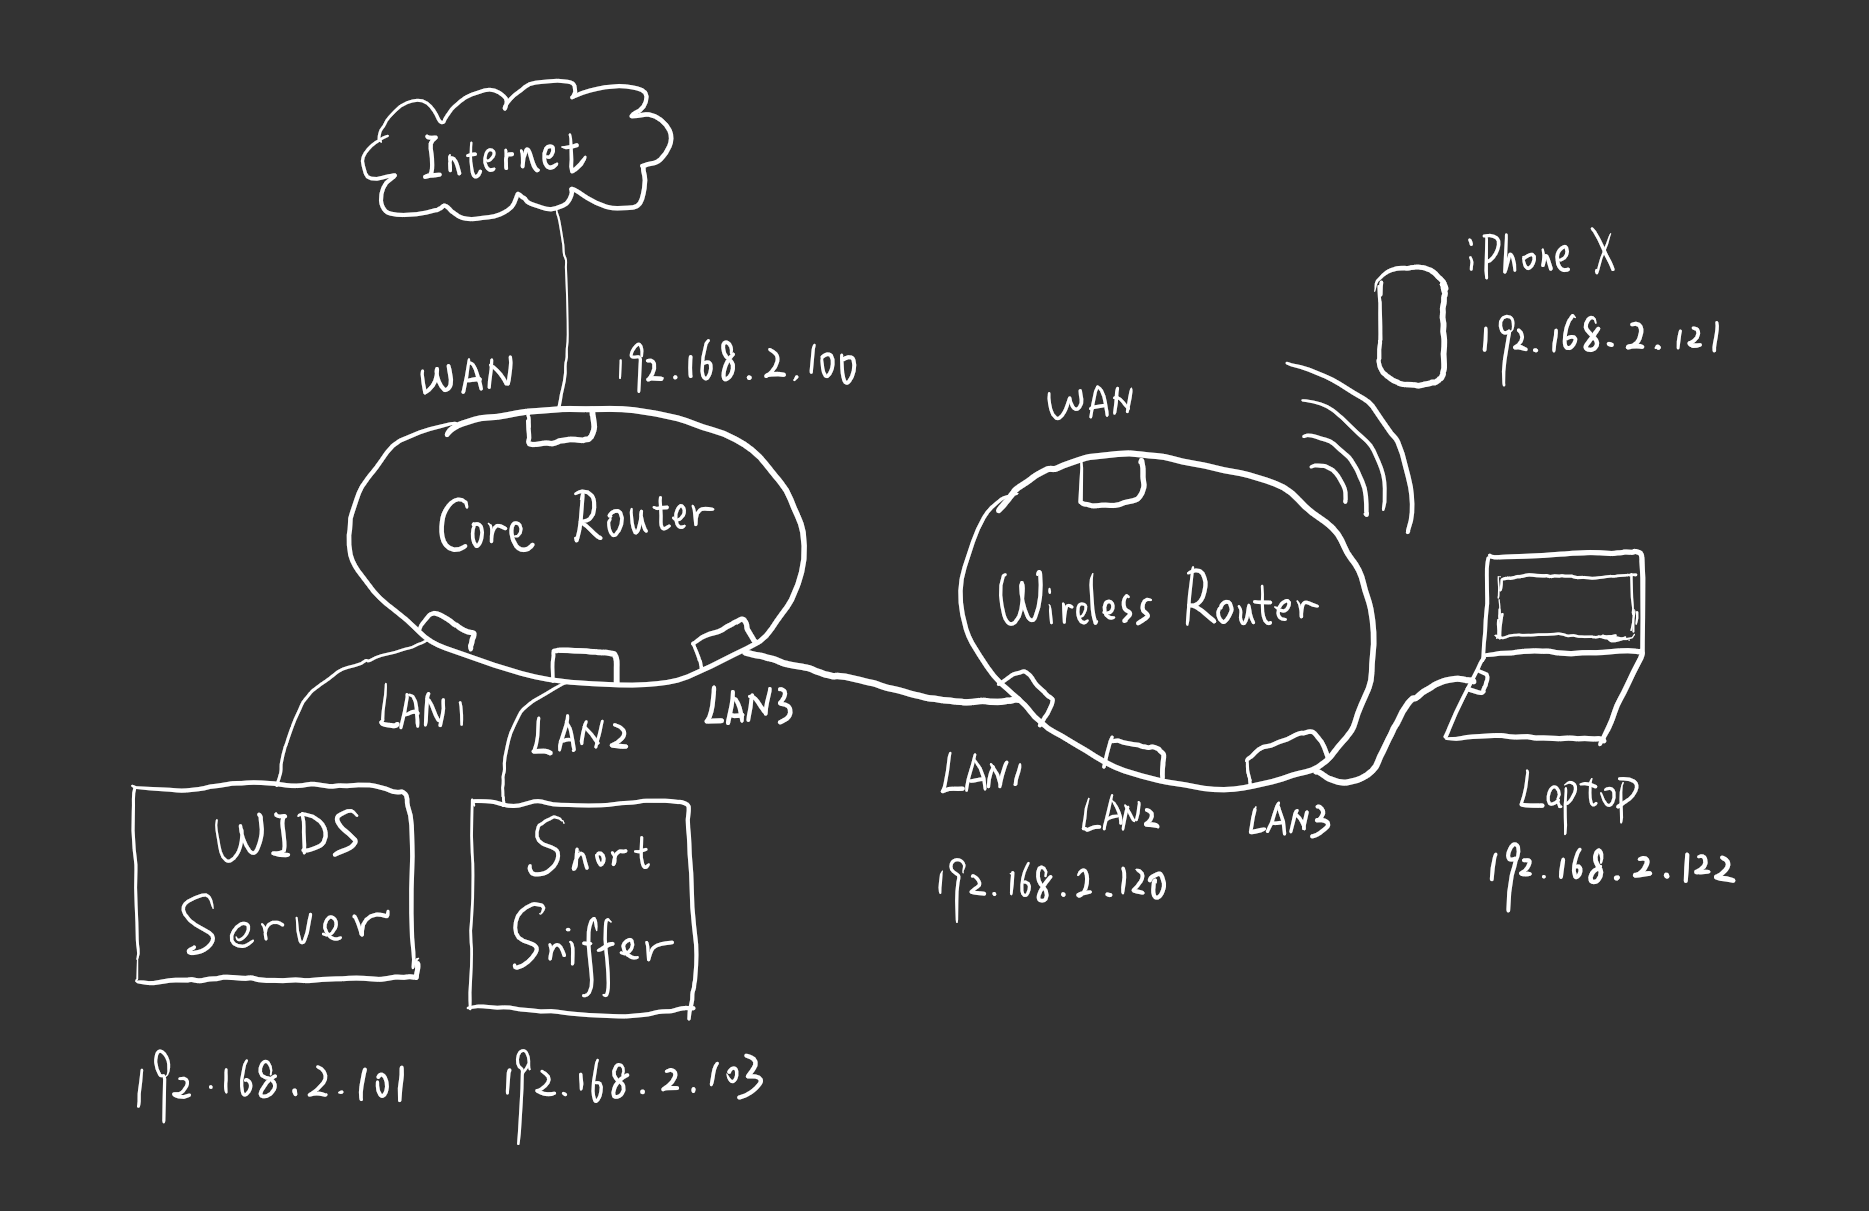 Internet
WAN
192.168.2.100
Core Router
LAN1
LAN2
LAN3
WIDS
Server
192.168.2.101
Snort
Sniffer
192.168.2.103
WAN
Wireless Router
LAN1
LAN2
LAN3
192.168.2.120
iPhone X
192.168.2.121
Laptop
192.168.2.122